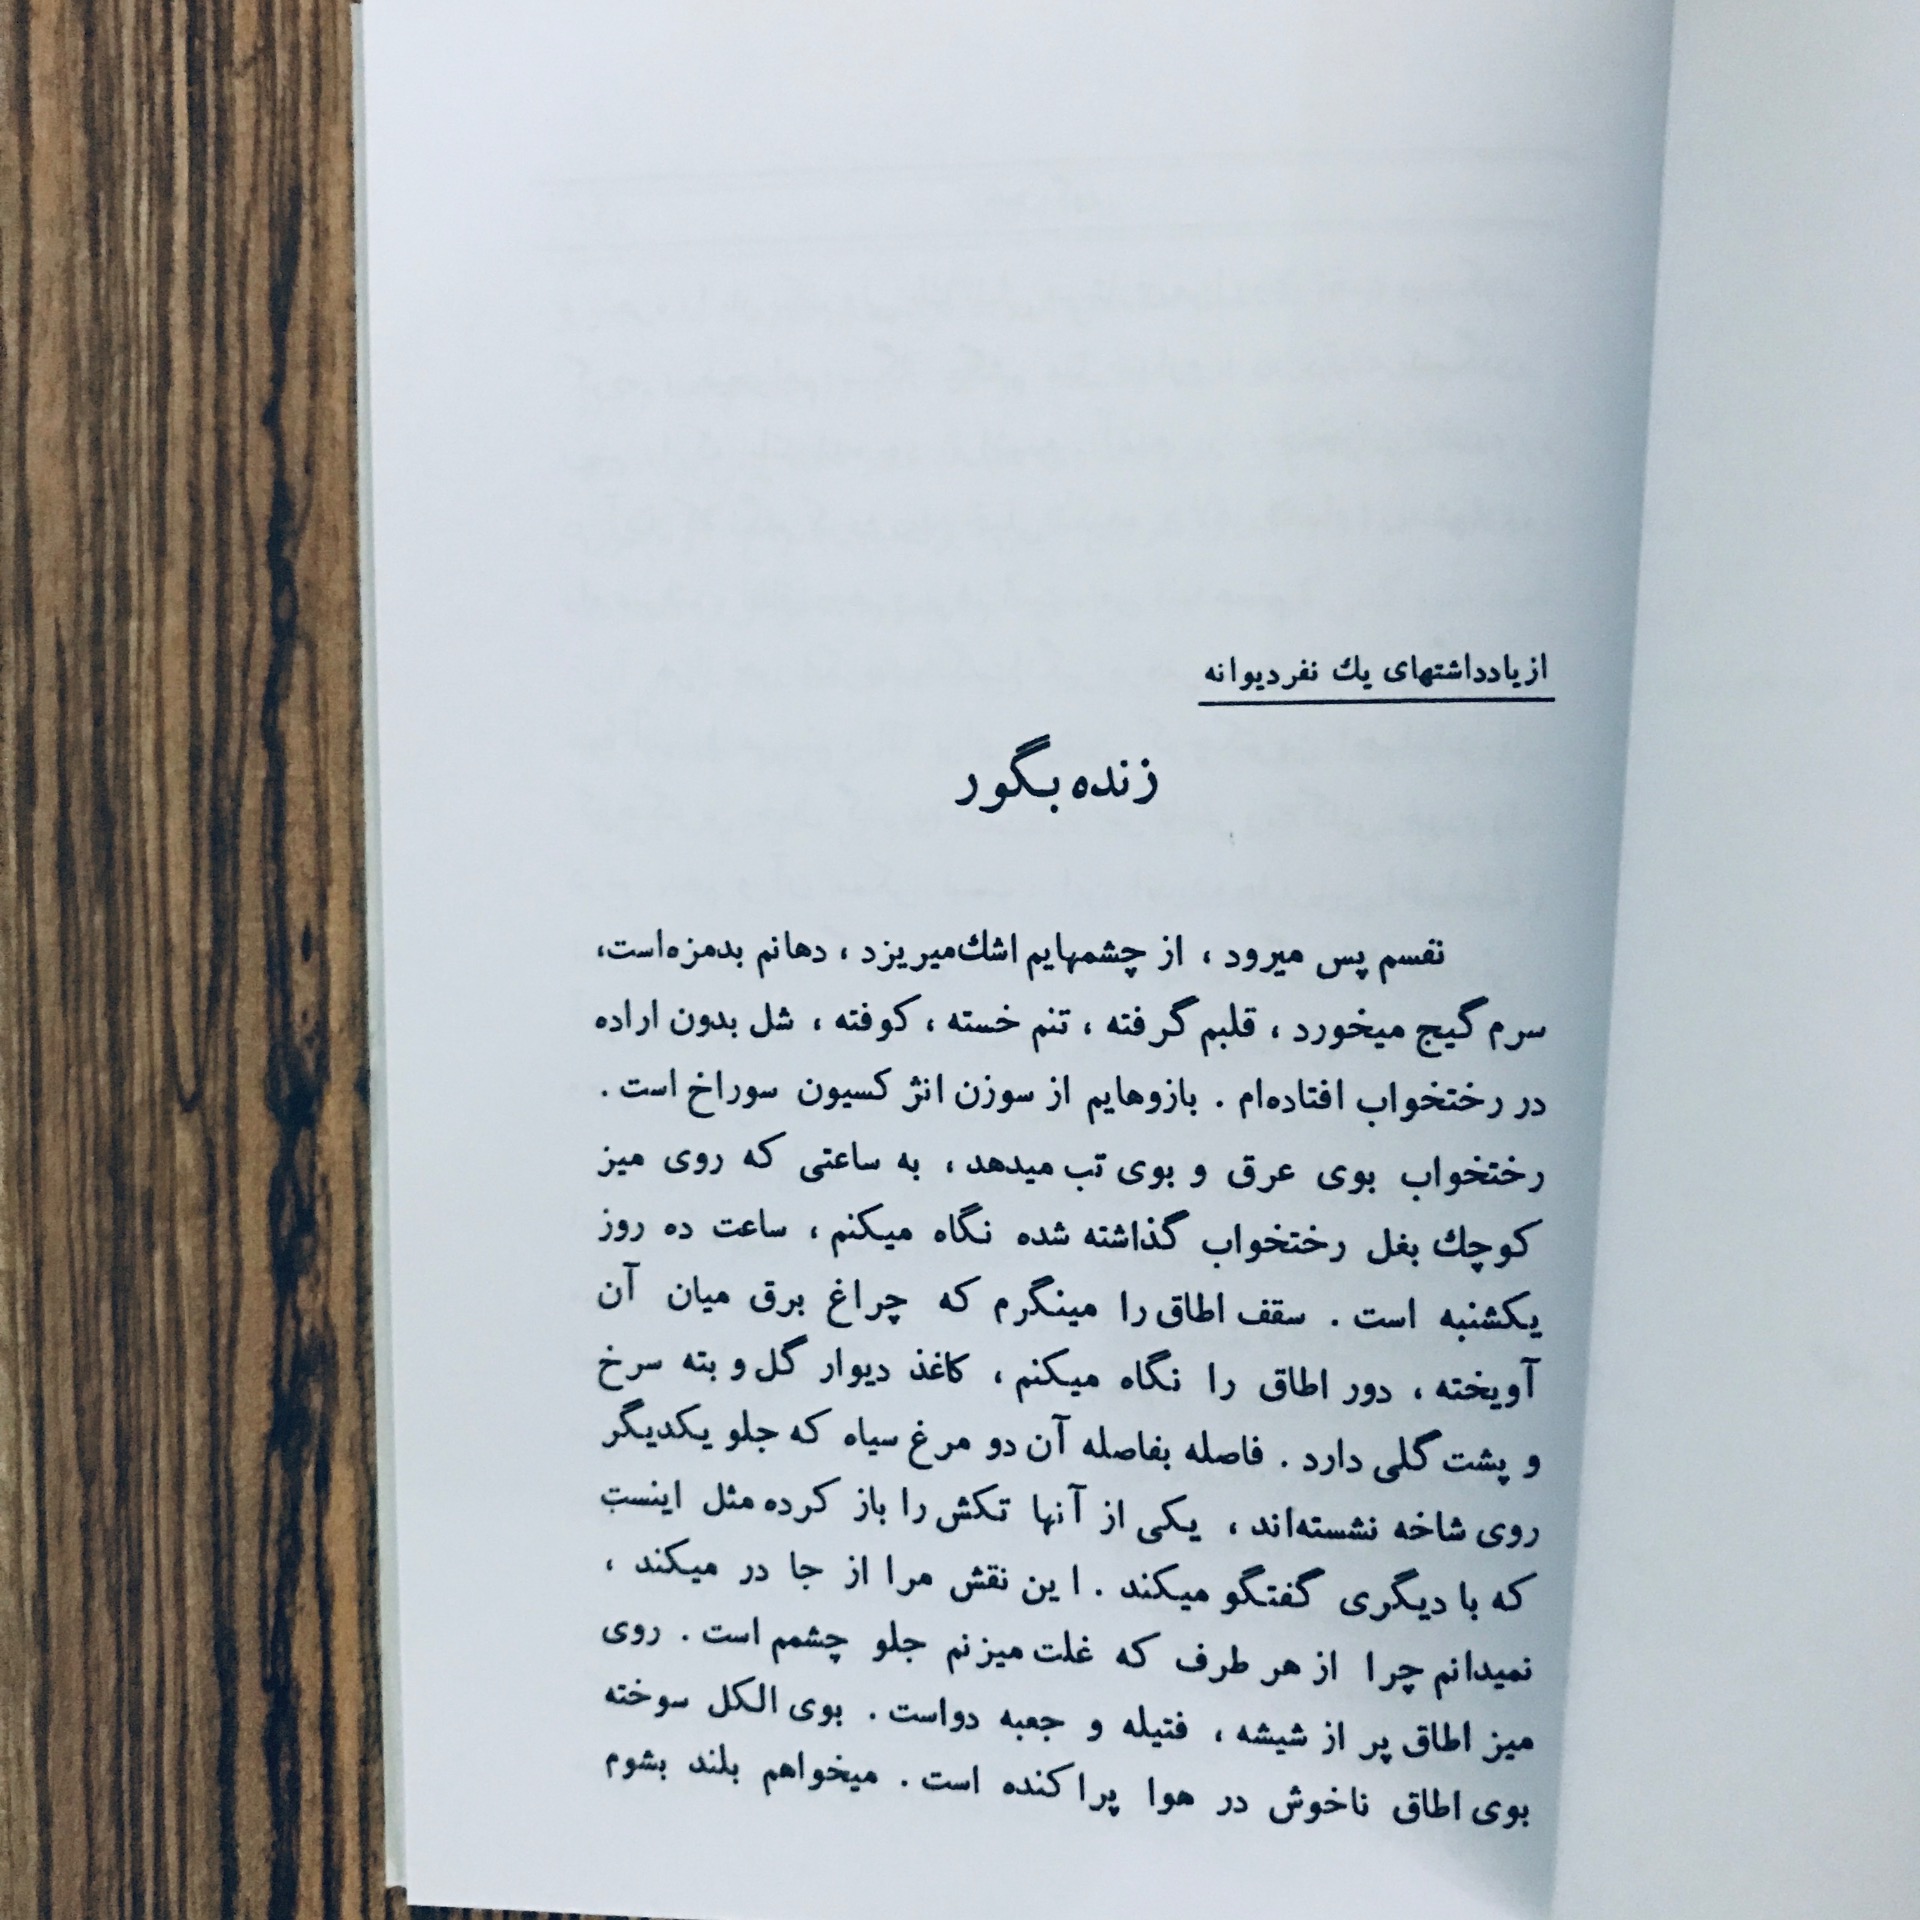 از یادداشتهای یك نفر دیوانه
زنده بگور
نفسم پس میرود ، از چشمهایم اشك میریزد ، دهانم بدمزه است،
سرم گیج میخورد ، قلبم گرفته ، تنم خسته ، کوفته ، شل بدون اراده
در رختخواب افتاده‌ام . بازوهایم از سوزن انژکسیون سوراخ است .
رختخواب بوی عرق و بوی تب میدهد ، به ساعتی که روی میز
کوچك بغل رختخواب گذاشته شده نگاه میکنم ، ساعت ده روز
یکشنبه است . سقف اطاق را مینگرم که چراغ برق میان آن
آویخته ، دور اطاق را نگاه میکنم ، کاغذ دیوار گل و بته سرخ
و پشت گلی دارد . فاصله بفاصله آن دو مرغ سیاه که جلو یکدیگر
روی شاخه نشسته‌اند ، یکی از آنها تکش را باز کرده مثل اینست
که با دیگری گفتگو میکند . این نقش مرا از جا در میکند ،
نمیدانم چرا از هر طرف که غلت میزنم جلو چشمم است . روی
میز اطاق پر از شیشه ، فتیله و جعبه دواست . بوی الکل سوخته
بوی اطاق ناخوش در هوا پراکنده است . میخواهم بلند بشوم